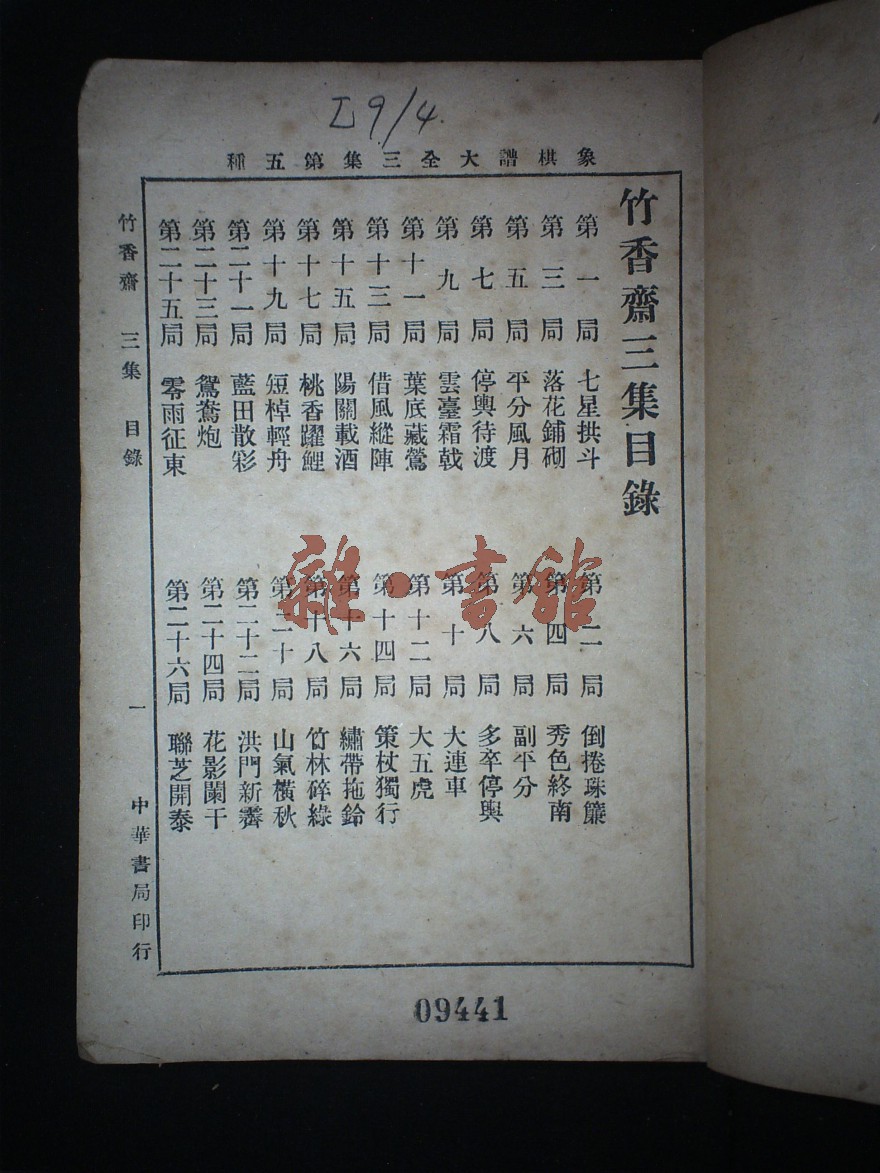 L9/4.
象棋譜大全三集第五種
竹香齋三集目錄
第一局 七星拱斗
第二局 倒捲珠簾
第三局 落花鋪砌
第四局 秀色終南
第五局 平分風月
第六局 副平分
第七局 停輿待渡
第八局 多卒停輿
第九局 雲臺霜戟
第十局 大連車
第十一局 葉底藏鶯
第十二局 大五虎
第十三局 借風縱陣
第十四局 策杖獨行
第十五局 陽關載酒
第十六局 繡帶拖鈴
第十七局 桃香躍鯉
第十八局 竹林碎綠
第十九局 短棹輕舟
第二十局 山氣橫秋
第二十一局 藍田散彩
第二十二局 洪門新霽
第二十三局 鴛鴦炮
第二十四局 花影闌干
第二十五局 零雨征東
第二十六局 聯芝開泰
竹香齋 三集 目錄 一 中華書局印行
雜·書館
09441